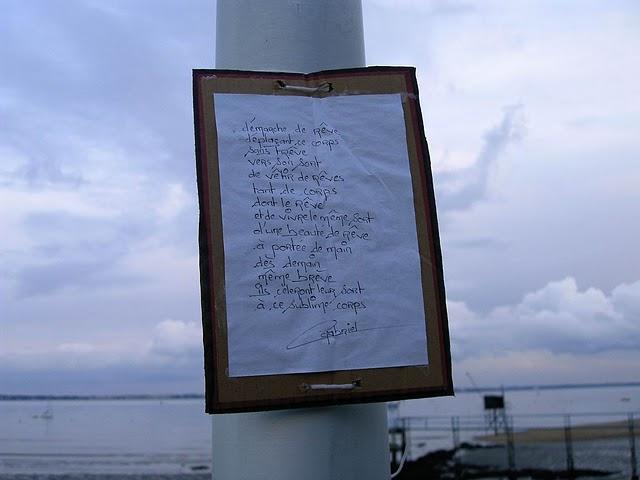 démarche de rêve
déplaçant ce corps
sans trêve
vers son sort
de vêtir de rêves
tant de corps
dont le rêve
et de vivre le même sort
d'une beauté de rêve
à portée de main
dès demain
même brève
ils scelleront leur sort
à ce sublime corps
Gabriel